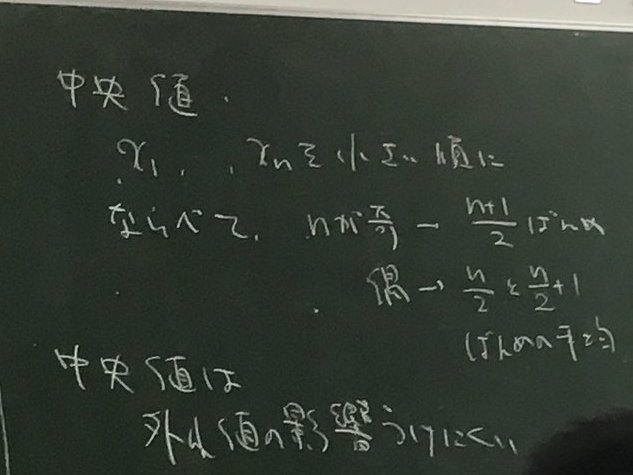 中央値.
x₁, ..., xₙを小さい順に
ならべて、 nが奇 → (n+1)/2 ばんめ
偶 → n/2 と n/2+1
ばんめの平均
中央値は
外れ値の影響うけにくい